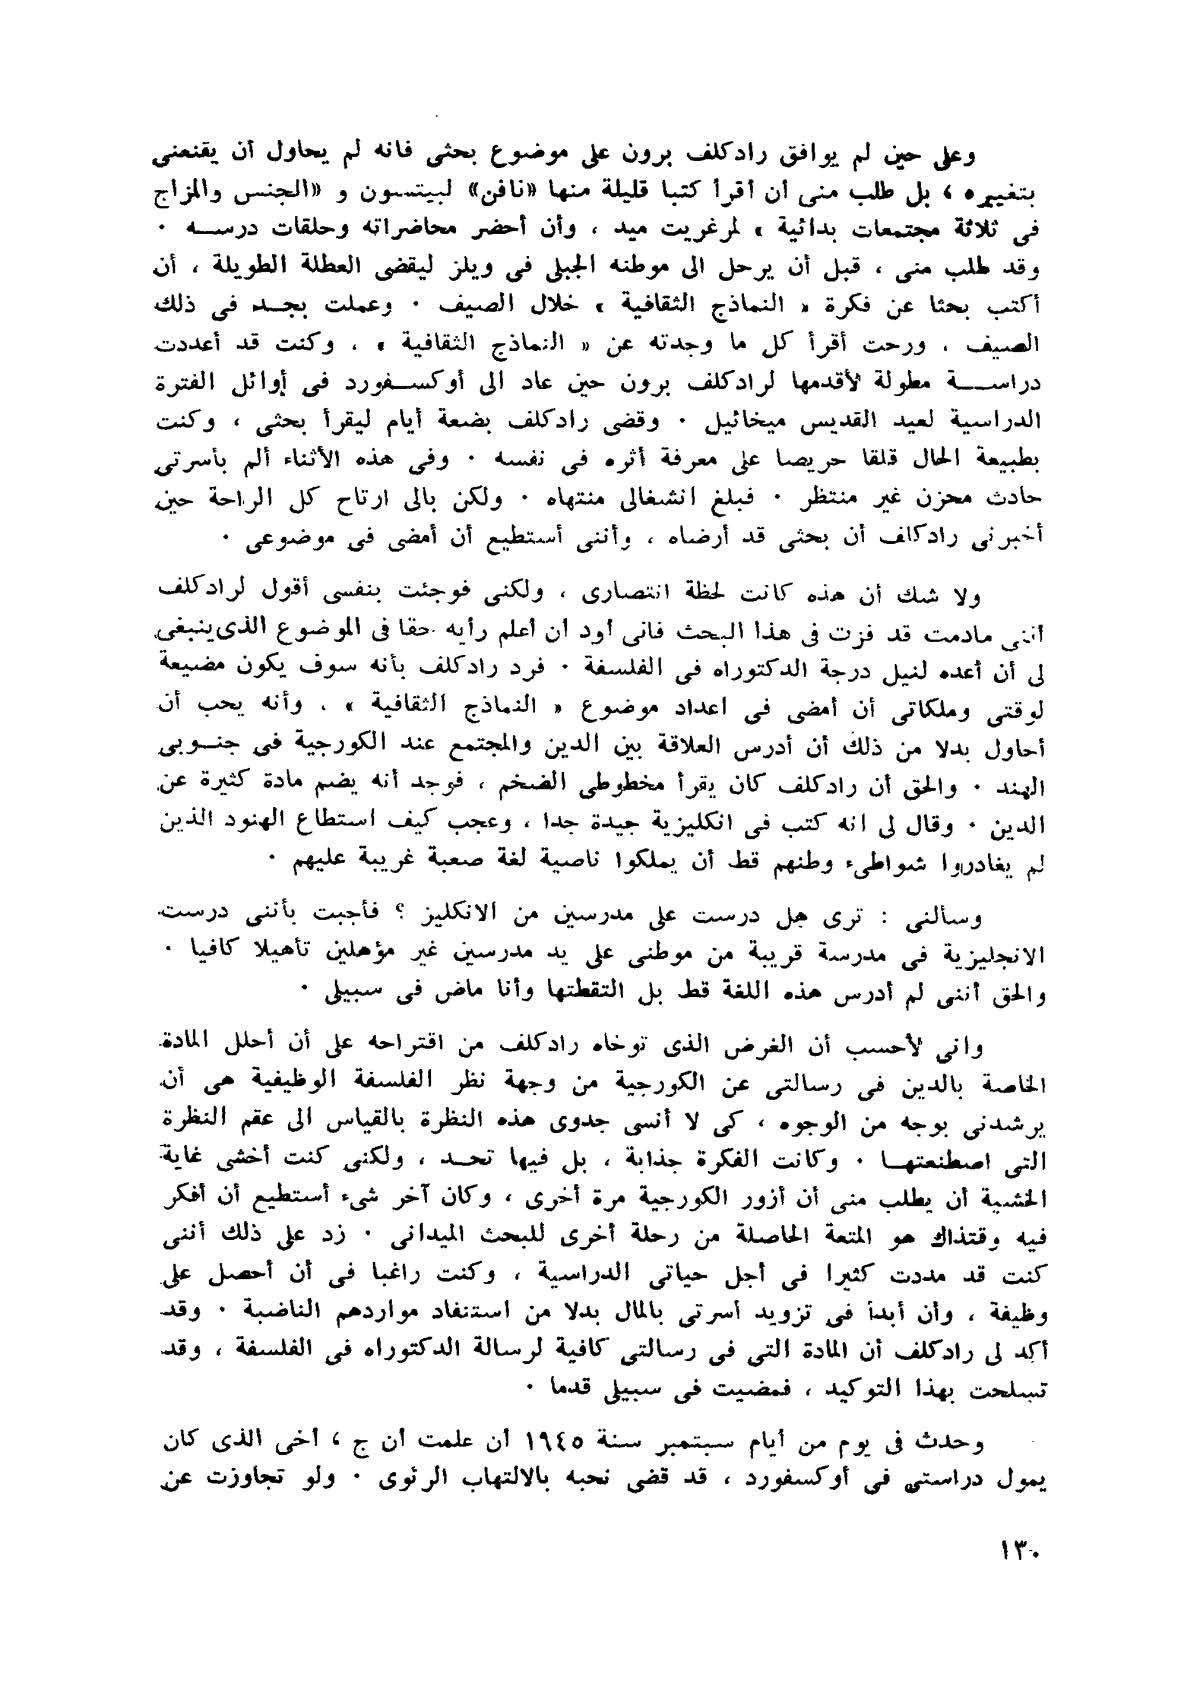 وعلى حين لم يوافق رادكلف برون على موضوع بحثى فانه لم يحاول أن يقنعنى
بتغييره ، بل طلب منى أن أقرأ كتبا قليلة منها «نافن» لبيتسون و «الجنس والمزاج
فى ثلاثة مجتمعات بدائية » لمرغريت ميد ، وأن أحضر محاضراته وحلقات درســه ·
وقد طلب منى ، قبل أن يرحل الى موطنه الجبلى فى ويلز ليقضى العطلة الطويلة ، أن
أكتب بحثا عن فكرة « النماذج الثقافية » خلال الصيف · وعملت بجــد فى ذلك
الصيف ، ورحت أقرأ كل ما وجدته عن « النماذج الثقافية » ، وكنت قد أعددت
دراســـة مطولة لأقدمها لرادكلف برون حين عاد الى أوكســفورد فى أوائل الفترة
الدراسية لعيد القديس ميخائيل · وقضى رادكلف بضعة أيام ليقرأ بحثى ، وكنت
بطبيعة الحال قلقا حريصا على معرفة أثره فى نفسه · وفى هذه الأثناء ألم بأسرتى
حادث محزن غير منتظر · فبلغ انشغالى منتهاه · ولكن بالى ارتاح كل الراحة حين
أخبرنى رادكلف أن بحثى قد أرضاه ، وأننى أستطيع أن أمضى فى موضوعى ·
ولا شك أن هذه كانت لحظة انتصارى ، ولكنى فوجئت بنفسى أقول لرادكلف
أننى مادمت قد فزت فى هذا البحث فانى أود أن أعلم رأيه حقا فى الموضوع الذى ينبغى
لى أن أعده لنيل درجة الدكتوراه فى الفلسفة · فرد رادكلف بأنه سوف يكون مضيعة
لوقتى وملكاتى أن أمضى فى اعداد موضوع « النماذج الثقافية » ، وأنه يحب أن
أحاول بدلا من ذلك أن أدرس العلاقة بين الدين والمجتمع عند الكورجية فى جنــوبى
الهند · والحق أن رادكلف كان يقرأ مخطوطى الضخم ، فوجد أنه يضم مادة كثيرة عن
الدين · وقال لى انه كتب فى انكليزية جيدة جدا ، وعجب كيف استطاع الهنود الذين
لم يغادروا شواطىء وطنهم قط أن يملكوا ناصية لغة صعبة غريبة عليهم ·
وسألنى : ترى هل درست على مدرسين من الانكليز ؟ فأجبت بأننى درست
الانجليزية فى مدرسة قريبة من موطنى على يد مدرسين غير مؤهلين تأهيلا كافيا ·
والحق أننى لم أدرس هذه اللغة قط بل التقطتها وأنا ماض فى سبيلى ·
وانى لأحسب أن الغرض الذى توخاه رادكلف من اقتراحه على أن أحلل المادة
الخاصة بالدين فى رسالتى عن الكورجية من وجهة نظر الفلسفة الوظيفية هى أن
يرشدنى بوجه من الوجوه ، كى لا أنسى جدوى هذه النظرة بالقياس الى عقم النظرة
التى اصطنعتهــا · وكانت الفكرة جذابة ، بل فيها تحــد ، ولكنى كنت أخشى غاية
الخشية أن يطلب منى أن أزور الكورجية مرة أخرى ، وكان آخر شىء أستطيع أن أفكر
فيه وقتذاك هو المتعة الحاصلة من رحلة أخرى للبحث الميدانى · زد على ذلك أننى
كنت قد مددت كثيرا فى أجل حياتى الدراسية ، وكنت راغبا فى أن أحصل على
وظيفة ، وأن أبدأ فى تزويد أسرتى بالمال بدلا من استنفاد مواردهم الناضبة · وقد
أكد لى رادكلف أن المادة التى فى رسالتى كافية لرسالة الدكتوراه فى الفلسفة ، وقد
تسلحت بهذا التوكيد ، فمضيت فى سبيلى قدما ·
وحدث فى يوم من أيام سبتمبر سنة ١٩٤٥ أن علمت أن ج ، أخى الذى كان
يمول دراستى فى أوكسفورد ، قد قضى نحبه بالالتهاب الرئوى · ولو تجاوزت عن
١٣٠